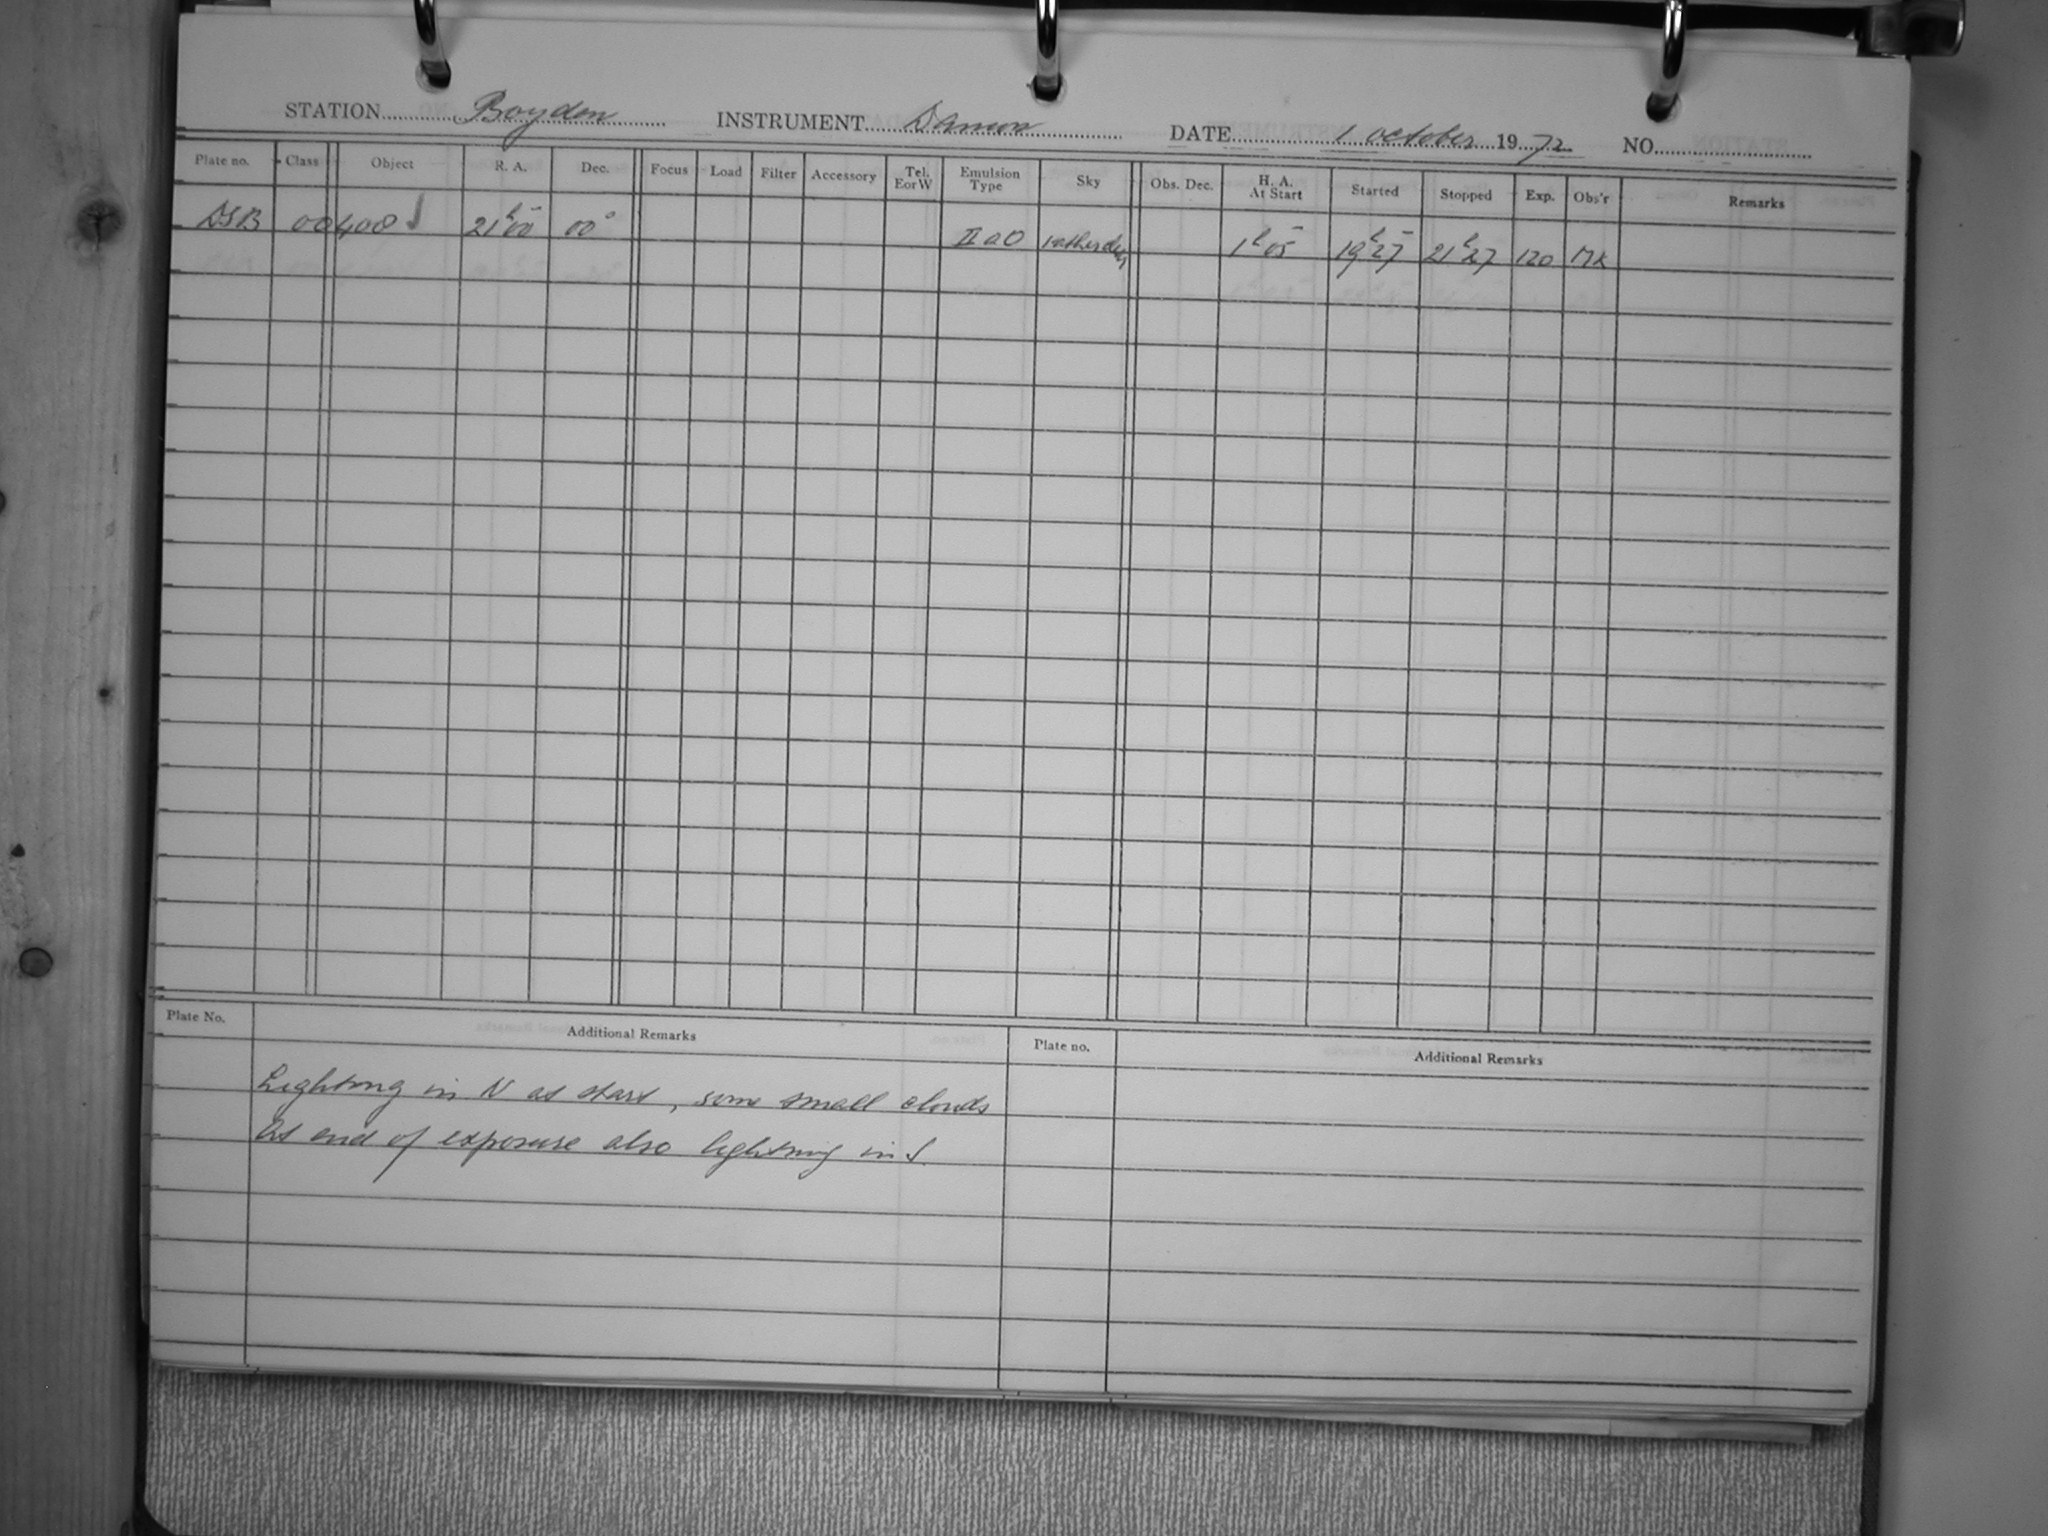 STATION Boyden INSTRUMENT Damon DATE 1 October 1972 NO
Plate no. Class Object R. A. Dec. Focus Load Filter Accessory Tel. EorW Emulsion Type Sky Obs. Dec. H. A. At Start Started Stopped Exp. Obs'r Remarks
DSB 00408 21h00m 00° IIaO 1h05m 19h27m 21h27m 120 MK
Plate No. Additional Remarks Plate no. Additional Remarks
Lightning in N at start, some small clouds
at end of exposure also lightning in S.